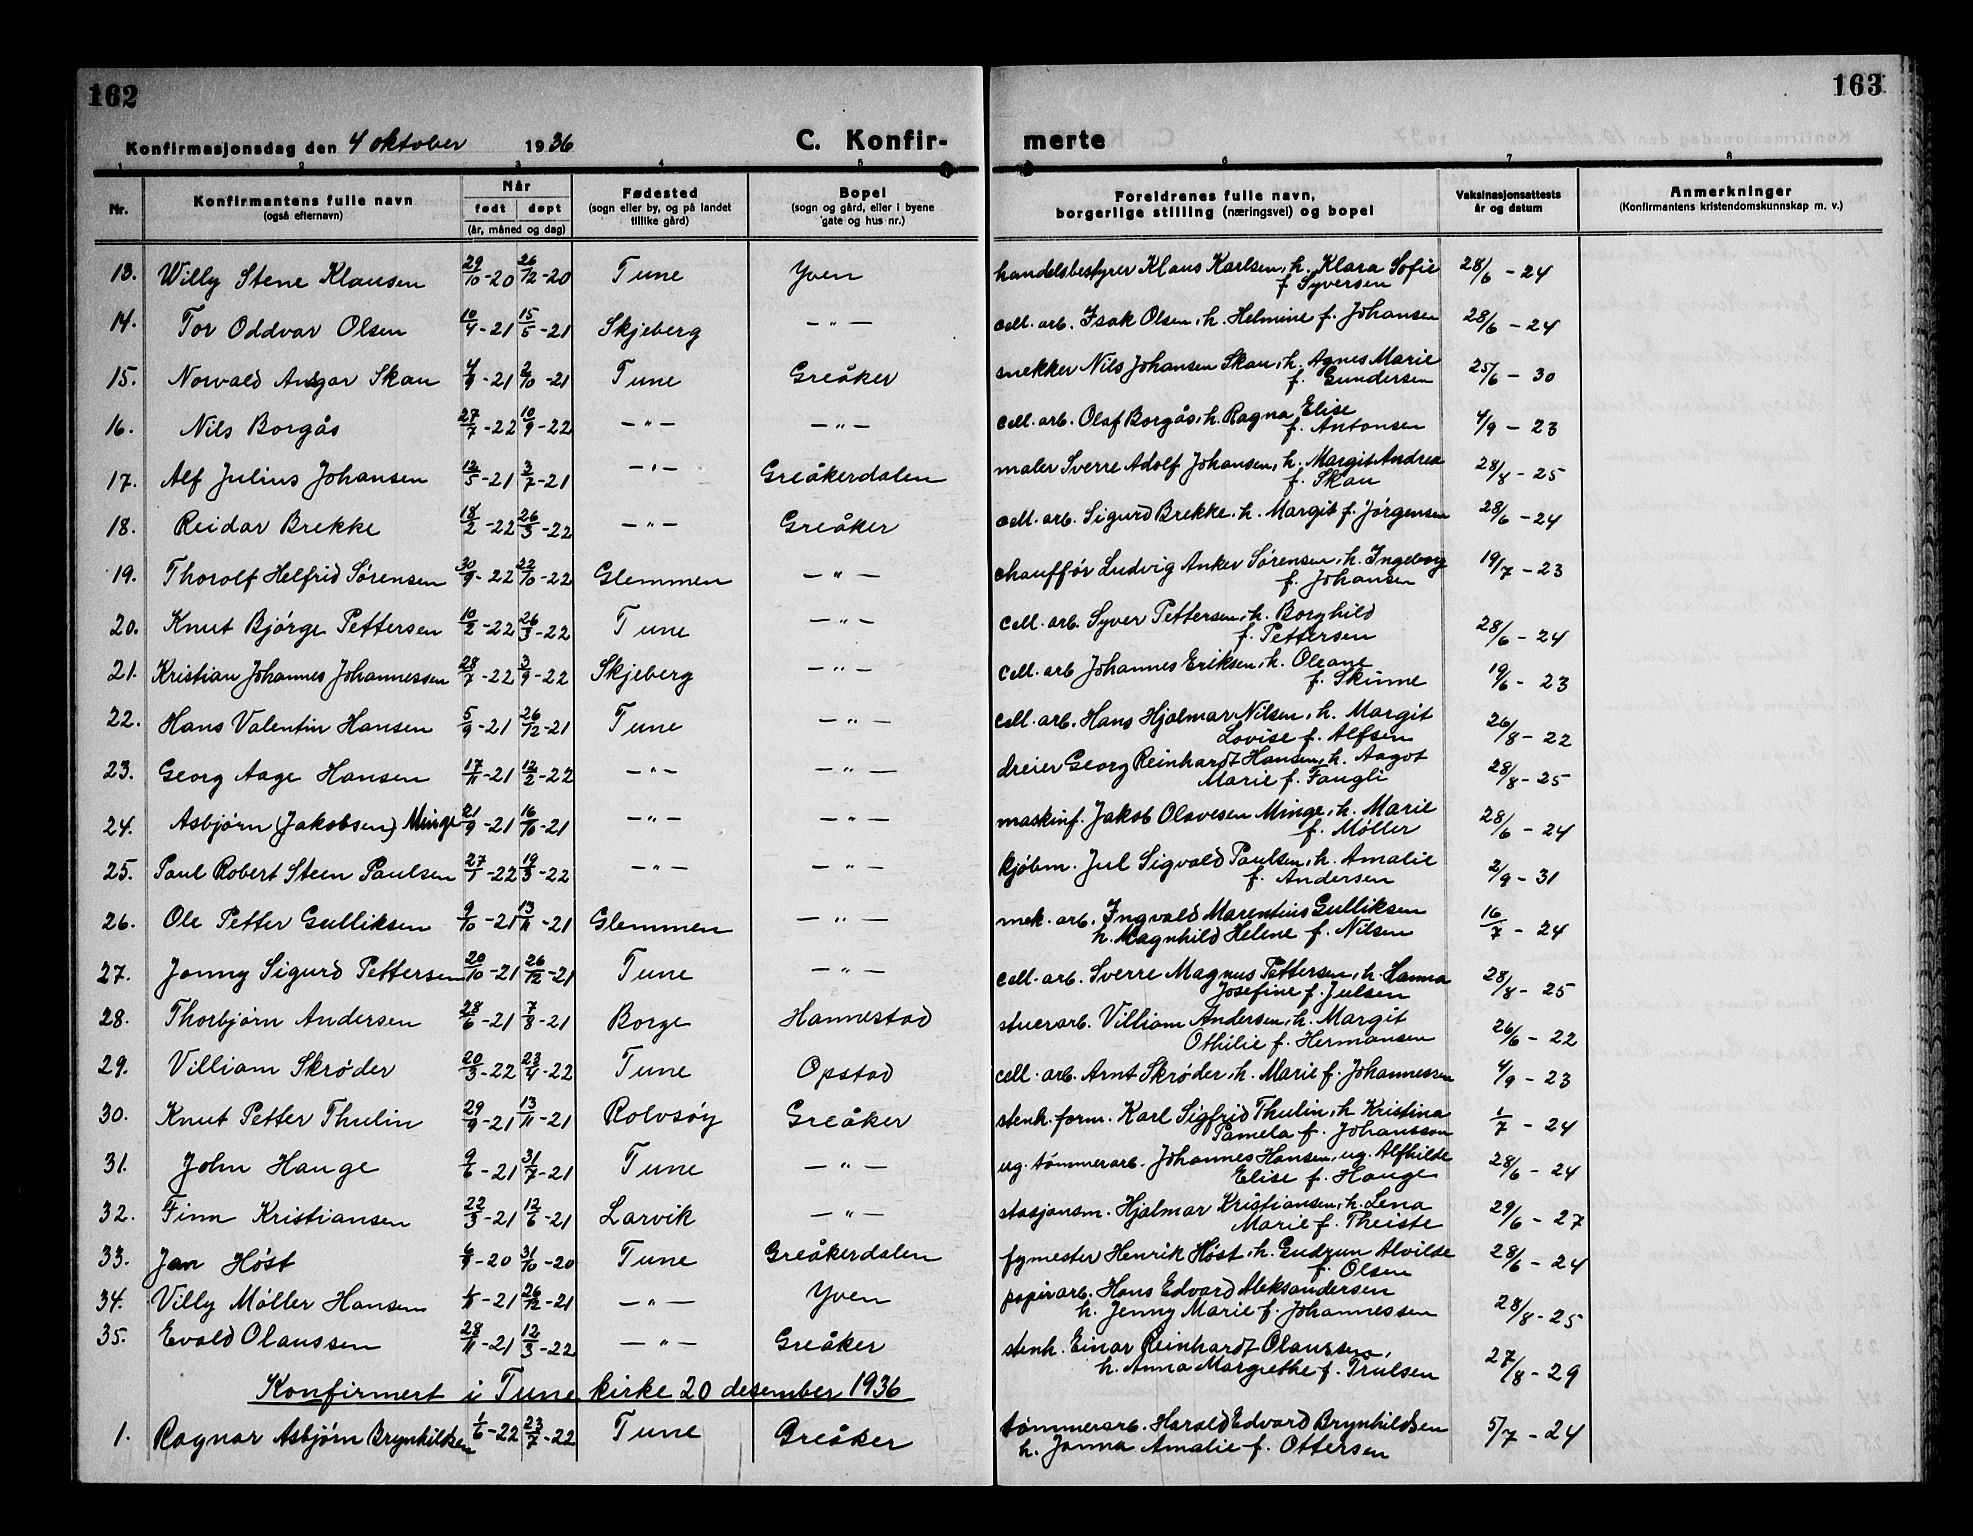 162
163
Konfirmasjonsdag den 4 oktober 1936 C. Konfir-
merte
1 2 3 4 5 6 7 8
Nr. Konfirmantens fulle navn (også efternavn) Når født døpt (år, måned og dag) Fødested (sogn eller by, og på landet tillike gård) Bopel (sogn og gård, eller i byene gate og hus nr.) Foreldrenes fulle navn, borgerlige stilling (næringsvei) og bopel Vaksinasjonsattests år og datum Anmerkninger (Konfirmantens kristendomskunnskap m. v.)
13. Willy Stene Klausen 29/10-20 26/12-20 Tune Yven handelsbestyrer Klaus Karlsen, h. Klara Sofie f. Syversen 28/6 - 24
14. Tor Oddvar Olsen 10/4-21 15/5-21 Skjeberg —"— cell. arb. Isak Olsen, h. Helmine f. Johansen 28/6 - 24
15. Norvald Ansgar Skau 4/9-21 2/10-21 Tune Greåker snekker Nils Johansen Skau, h. Agnes Marie f. Gundersen 25/6 - 30
16. Nils Borgås 27/7-22 10/9-22 —"— —"— cell. arb. Olaf Borgås, h. Ragna Elise f. Antonsen 4/9 - 23
17. Alf Julius Johansen 12/5-21 3/7-21 —"— Greåkerdalen maler Sverre Adolf Johansen, h. Margit Andrea f. Skau 28/8 - 25
18. Reidar Brekke 18/2-22 26/3-22 —"— Greåker cell. arb. Sigurd Brekke, h. Margit f. Jørgensen 28/6 - 24
19. Thorolf Helfrid Sørensen 30/9-22 22/10-22 Glemmen —"— chauffør Ludvig Anker Sørensen, h. Ingeborg f. Johansen 19/7 - 23
20. Knut Bjørge Pettersen 10/2-22 26/3-22 Tune —"— cell. arb. Syver Pettersen, h. Borghild f. Pettersen 28/6 - 24
21. Kristian Johannes Johannessen 28/7-22 3/9-22 Skjeberg —"— cell. arb Johannes Eriksen, h. Oleane f. Skinne 19/6 - 23
22. Hans Valentin Hansen 5/9-21 26/12-21 Tune —"— cell. arb. Hans Hjalmar Nilsen, h. Margit Lovise f. Alfsen 26/8 - 22
23. Georg Aage Hansen 17/11-21 12/2-22 —"— —"— dreier Georg Reinhardt Hansen, h. Aagot Marie f. Fangli 28/8 - 25
24. Asbjørn (Jakobsen) Minge 21/9-21 16/10-21 —"— —"— maskinf. Jakob Olavesen Minge, h. Marie f. Møller 28/6 - 24
25. Paul Robert Steen Paulsen 27/1-22 19/3-22 —"— —"— kjøbm. Jul Sigvald Paulsen, h. Amalie f. Andersen 2/9 - 31
26. Ole Petter Gulliksen 9/10-21 13/11-21 Glemmen —"— mek. arb. Ingvald Marentius Gulliksen h. Magnhild Helene f. Nilsen 16/7 - 24
27. Jonny Sigurd Pettersen 20/10-21 26/12-21 Tune —"— cell. arb. Sverre Magnus Pettersen, h. Hanna Josefine f. Julsen 28/8 - 25
28. Thorbjørn Andersen 28/6-21 7/8-21 Borge Hannestad stuerarb. Villiam Andersen, h. Margit Othilie f. Hermansen 26/6 - 22
29. Villiam Skrøder 20/3-22 23/4-22 Tune Opstad cell. arb. Arnt Skrøder, h. Marie f. Johannessen 4/9 - 23
30. Knut Petter Thulin 29/9-21 13/11-21 Rolvsøy Greåker stenh. form. Karl Sigfrid Thulin, h Kristina Pamela f. Johansson 1/7 - 24
31. John Hauge 9/6-21 31/7-21 Tune —"— ug. tømmerarb. Johannes Hansen, ug. Alfhilde Elise f. Hauge 28/6 - 24
32. Finn Kristiansen 22/3-21 12/6-21 Larvik —"— stasjonsm. Hjalmar Kristiansen, h. Lena Marie f. Theiste 29/6 - 27
33. Jan Høst 6/9-20 31/10-20 Tune Greåkerdalen fymester Henrik Høst, h. Gudrun Alvilde f. Olsen 28/6 - 24
34. Villy Møller Hansen 1/11-21 26/12-21 —"— Yven papirarb. Hans Edvard Aleksandersen h. Jenny Marie f. Johannessen 28/8 - 25
35. Evald Olaussen 28/11-21 12/3-22 —"— Greåker stenh. Einar Reinhardt Olaussen, h. Anna Margrethe f. Trulsen 27/8 - 29
Konfirmert i Tune kirke 20 desember 1936
1. Ragnar Asbjørn Brynhildsen 1/6-22 23/7-22 Tune Greåker tømmerarb. Harald Edvard Brynhildsen h. Janna Amalie f. Ottersen 5/7 - 24